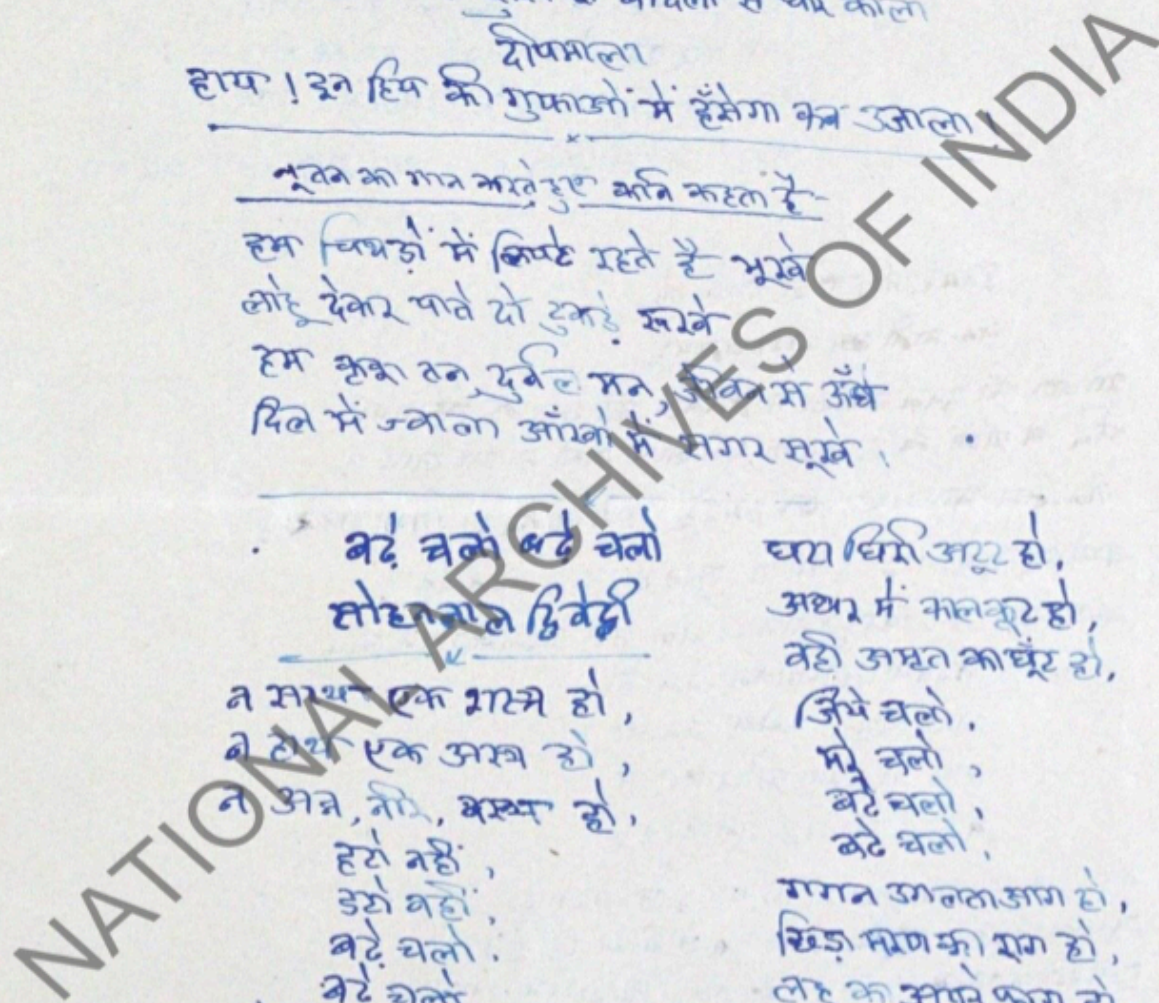 दीपमाला
हाय! इन हिय की गुफाओं में हँसेगा कब उजाला!
नूतन का गान करते हुए कवि कहता है-
हम चिथड़ों में लिपटे रहते है भूखे
लोहू देकर पाते दो टुकड़े रूखे
हम कृश तन, दुर्बल मन, जीवन से ऊँघे
दिल में ज्वाला आँखों में सागर सूखे।
बढ़े चलो बढ़े चलो
सोहनलाल द्विवेदी
न साथ एक शस्त्र हो,
न हाथ एक अस्त्र हो,
न अन्न, नीर, वस्त्र हो,
हटो नहीं,
डटो वहीं,
बढ़े चलो.
बढ़े चलो
घटा घिरी अटूट हो,
अधर में कालकूट हो,
वही अमृत का घूँट हो,
जिये चलो,
मरे चलो,
बढे चलो,
बढे चलो,
गगन उगलता आग हो,
छिड़ा मरण का राग हो,
लहू का
NATIONAL ARCHIVES OF INDIA